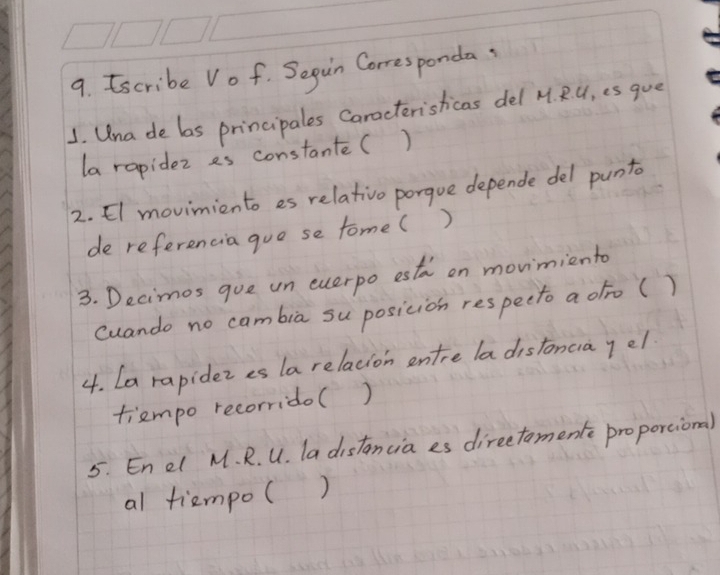 9. Iscribe V o f. Según Corresponda:
1. Una de las principales Caracteristicas del M.R.U, es que
la rapidez es constante ( )
2. El movimiento es relativo porque depende del punto
de referencia que se tome ( )
3. Decimos que un cuerpo está en movimiento
cuando no cambia su posición respecto a otro ( )
4. La rapidez es la relación entre la distancia y el
tiempo recorrido ( )
5. En el M.R.U. la distancia es directamente proporcional
al tiempo ( )